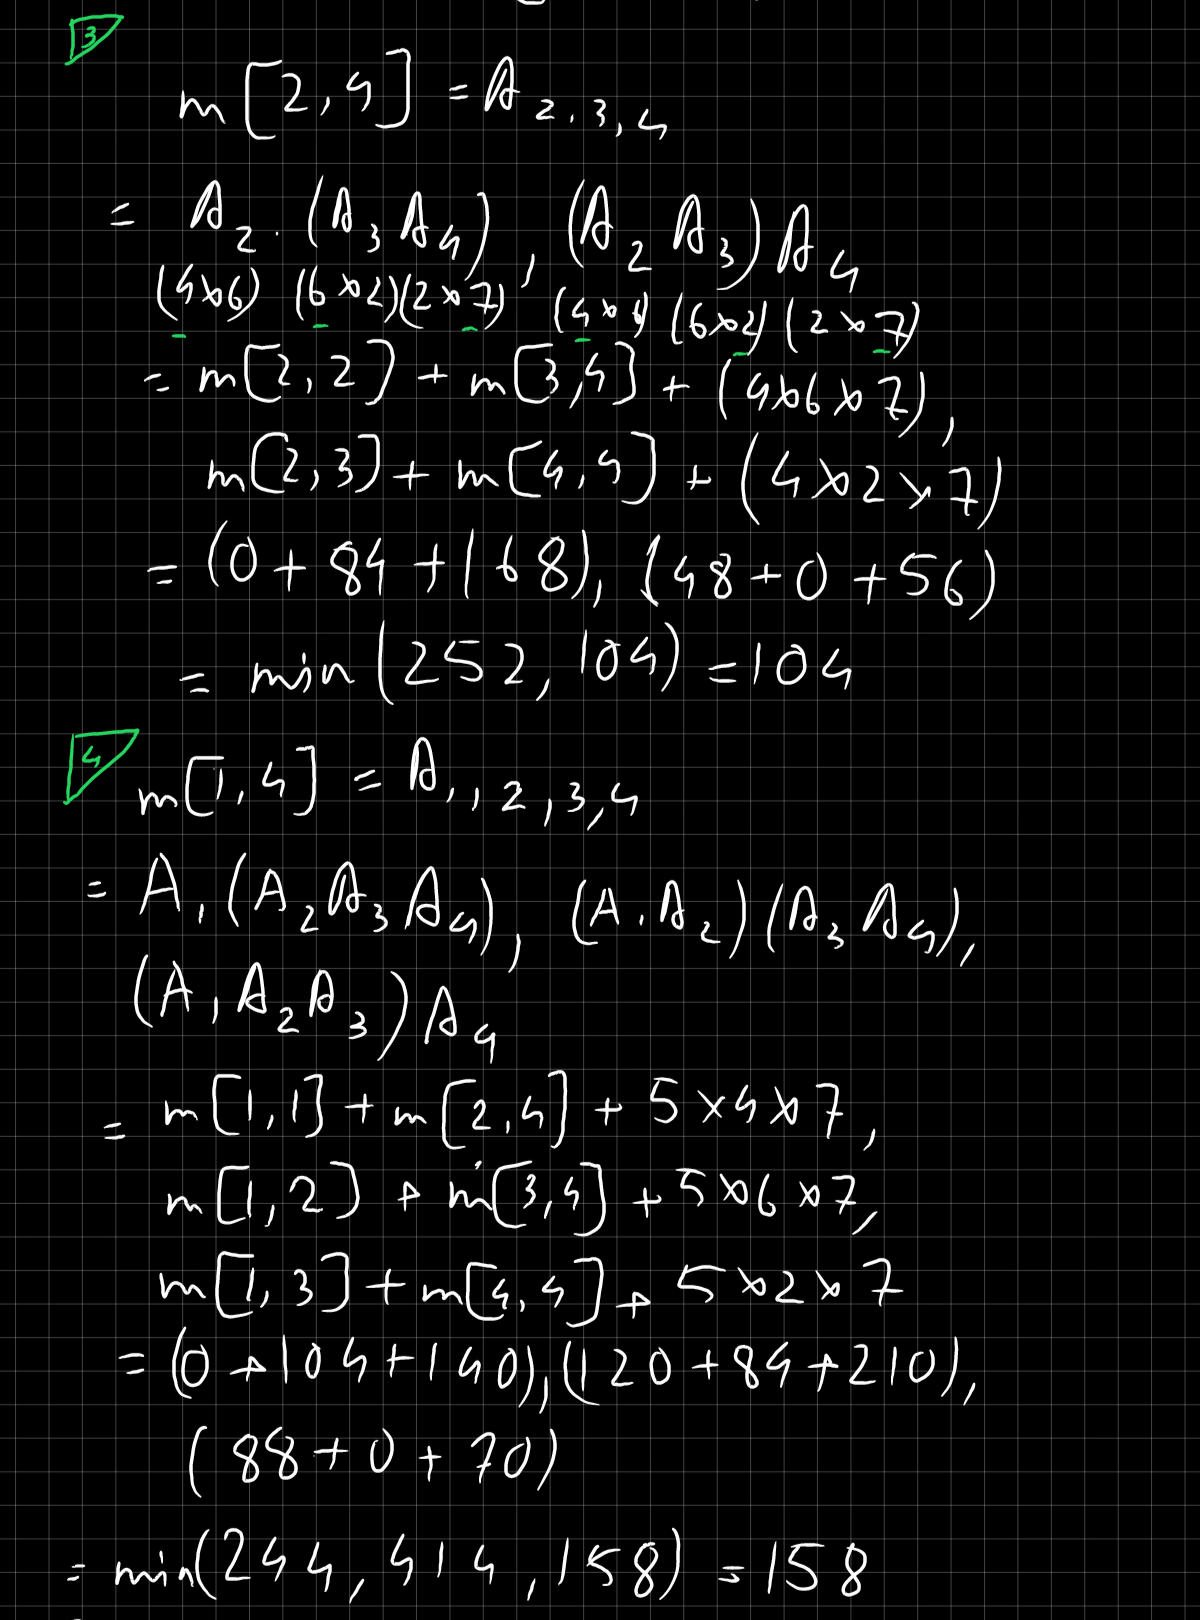 3
m[2,4] = A₂,₃,₄
= A₂. (A₃ A₄), (A₂ A₃) A₄
(4×6) (6×2)(2×7) (4×6) (6×2) (2×7)
= m[2,2] + m[3,4] + (4×6×7),
m[2,3] + m[4,4] + (4×2×7)
= (0+84+168), (48+0+56)
= min(252, 104) = 104
4
m[1,4] = A₁,₂,₃,₄
= A₁(A₂A₃A₄), (A₁A₂)(A₃A₄),
(A₁A₂A₃)A₄
= m[1,1] + m[2,4] + 5×4×7,
m[1,2] + m[3,4] + 5×6×7,
m[1,3] + m[4,4] + 5×2×7
= (0+104+140), (120+84+210),
(88+0+70)
= min(244, 414, 158) = 158